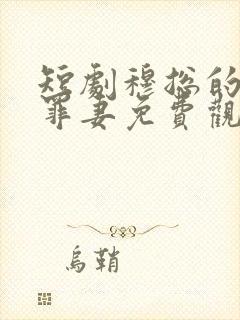 短劇穆總的
罪妻免費觀
烏鞘